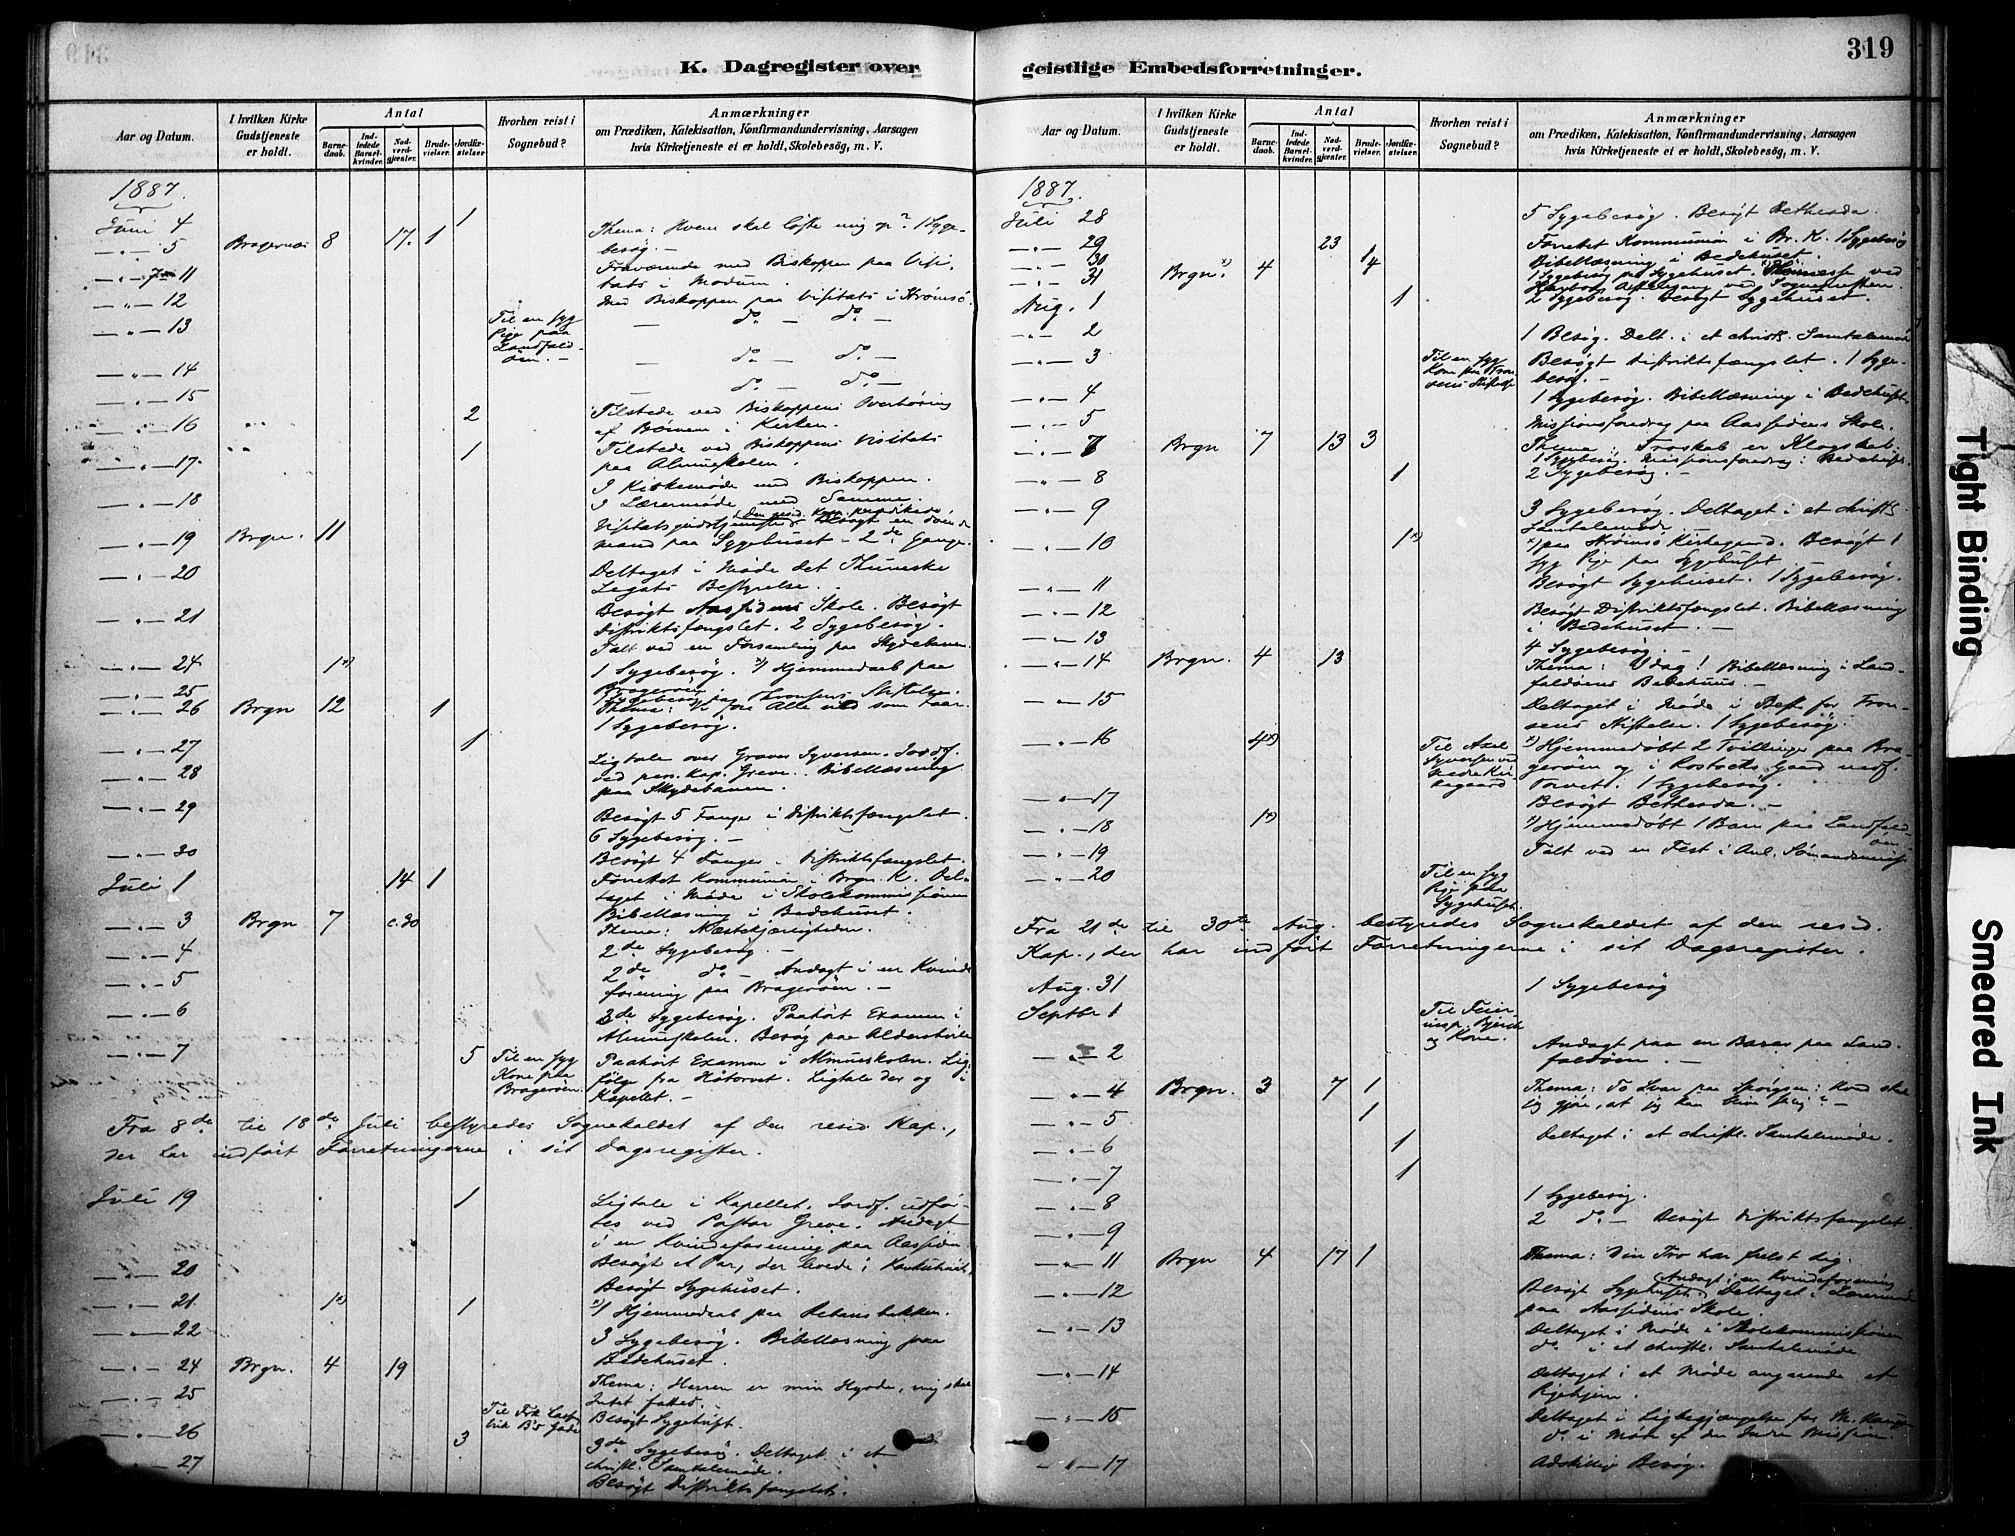 319
K. Dagregister over geistlige Embedsforretninger.
Aar og Datum.
I hvilken Kirke Gudstjeneste er holdt.
Antal
Barnedaab.
Indledede Barselkvinder.
Nadverdgjæster.
Brudevielser.
Jordfæstelser.
Hvorhen reist i Sognebud?
Anmærkninger
om Prædiken, Katekisation, Konfirmandundervisning, Aarsagen
hvis Kirketjeneste ei er holdt, Skolebesøg, m. V.
1887.
Juni 4 1
5 Bragernæs 8 17. 1 Thema: Hvem skal løfte mig op? 1 Syge-
besøg. —
11 Fraværende med Biskoppen paa Visi-
tats i Modum.
12 Med Biskoppen paa Visitats i Strømsø.
13 Til en syg Pige paa Landfaldøen. — — do — do —
14 — do — do —
15 do — do —
16 2 Tilstede ved Biskoppens Overhøring
af Børnene i Kirken.
17 1 Tilstede ved Biskoppens Visitats
paa Almueskolen.
18 I Kirkemøde med Biskoppen.
I Lærermøde med Samme.
19 Brgn. 11 Visitatsgudstjeneste. Den resid. Kap. prædikede. Besøgt en døende
Mand paa Sygehuset — 2de Gange.
20 Deltaget i Møde det Thuneske
Legats Bestyrelse.
21 Besøgt Aassidens Skole. Besøgt
Distriktsfængslet. 2 Sygebesøg.
Talt ved en Forsamling paa Skydebanen.
24 1x) 1 Sygebesøg. x) Hjemmedaab paa
Bragerøen
25 Sygebesøg paa Thronsens Stiftelse.
26 Brgn 12 1 Thema:
1 Sygebesøg.
27 1 Ligtale over Graver Syversen. Jordf.
ved pers. Kap. Greve. Bibellæsning
28 paa Skydebanen.
29 Besøgt 5 Fanger i Distriktsfængslet.
6 Sygebesøg. —
30 Besøgt 4 Fanger i Distriktsfængslet.
Juli 1 14 1 Forrettet Kommunion i Brgn. K. Del-
taget i Møde i Skolekommissionen
Bibellæsning i Bedehuset.
3 Brgn 7 c. 30 Thema: Næstekjærligheden.
4 2de Sygebesøg. —
5 2de do — Andagt i en Kvinde-
forening paa Bragerøen. —
6 2de Sygebesøg. Paahørt Examen i
Almueskolen. Besøg paa Aldershvile
7 5 Til en syg Kone paa Bragerøen. Paahørt Examen i Almueskolen. Lig-
følge fra Høtorvet. Ligtale der og i
Kapellet. —
Fra 8de til 18de Juli bestyredes Sognekaldet af den resid Kap.,
der har indført Forretningerne i sit Dagsregister.
Juli 19 1 Ligtale i Kapellet. Jordf. udfør-
tes ved Pastor Greve. Andagt
i en Kvindeforening paa Aassiden
20 Besøgt et Par, der levede i Konkubinat.
Besøgt Sygehuset.
21 1x) 1 x) 1 Hjemmedaab paa
22 3 Sygebesøg. Bibellæsning paa
Bedehuset.
24 Brgn. 4 19 Thema: Herren er min Hyrde, mig skal
Intet fattes. —
25 Besøgt Sygehuset.
26 3 3de Sygebesøg. Deltaget i et
christl. Samtalemøde.
27 Besøgt Distriktsfængslet.
Aar og Datum.
I hvilken Kirke Gudstjeneste er holdt.
Antal
Barnedaab.
Indledede Barselkvinder.
Nadverdgjæster.
Brudevielser.
Jordfæstelser.
Hvorhen reist i Sognebud?
Anmærkninger
om Prædiken, Katekisation, Konfirmandundervisning, Aarsagen
hvis Kirketjeneste ei er holdt, Skolebesøg, m. V.
1887.
Juli 28 5 Sygebesøg. Besøgt Bethesda.
29 23 Forrettet Kommunion i Br. K. 1 Sygebesøg
Bibellæsning i Bedehuset.
30 1 1 Sygebesøg paa Sygehuset.
31 Brgn. x) 4 4
Aug. 1 1 2 Sygebesøg. Besøgt Sygehuset.
2 1 Besøg. Delt. i et christl. Samtalemøde
3 Besøgt Distriktsfængslet. 1 Syge-
besøg. —
4 1 Sygebesøg. Bibellæsning i Bedehuset.
5 Missionsforedrag paa Aassidens Skole.
7 Brgn 7 13 3 Thema: Troskab er Klogskab.
1 Sygebesøg. Missionsforedrag i Bedehuset.
8 1 2 Sygebesøg. —
9 3 Sygebesøg. Deltaget i et christl.
Samtalemøde.
10 1x) x) paa Strømsø Kirkegaard. Besøgt 1
syg Pige paa Sygehuset
11 Besøgt Sygehuset. 1 Sygebesøg.
12 Besøgt Distriktsfængslet. Bibellæsning
i Bedehuset. —
13 4 Sygebesøg. —
14 Brgn. 4 13 Thema: I dag! Bibellæsning i Land-
faldøens Bedehuus. —
15 Deltaget i Møde i Best. for Tron-
sens Stiftelse. 1 Sygebesøg.
16 4x) Til Axel Syversen ved nedre Kirkegaard x) Hjemmedøbt 2 Tvillinger paa Bra-
gerøen og i Rostocks Gaard nedf.
Torvet. 1 Sygebesøg.
17 Besøgt Bethesda. —
18 1x) x) Hjemmedøbt 1 Barn paa Landfald-
øen.
19 Talt ved en Fest i Anl. Sømandsmiss.
20 Til en syg Pige paa Sygehuset.
Fra 21de til 30te Aug. bestyredes Sognekaldet af den resid.
Kap., der har indført Forretningerne i sit Dagsregister.
Aug. 31 1 Sygebesøg
Septbr 1
2 Andagt paa en Bazar paa Land-
faldøen. —
4 Brgn. 3 7 1 Thema: To Svar paa Spørgsm: Hvad skal
jeg gjøre, at jeg kan blive salig? —
5 1
6 1 Deltaget i et christl. Samtalemøde.
7 1
8 1 Sygebesøg.
9 2 do — Besøgt Distriktsfængslet.
11 Brgn 4 17 1 Thema: Din Tro har frelst dig.
12 Besøgt Sygehuset. Andagt i en Kvindeforening Deltaget i Lærermøde
paa Aassidens Skole.
13 Deltaget i Møde i Skolekommissionen
do i et christl. Samtalemøde
14 Deltaget i et Møde angaaende et
Pigehjem.
15 Deltaget i Ligbegjængelse for
do i Møde af den Indre Mission.
17 Adskillige Besøg.
Tight Binding
Smeared Ink